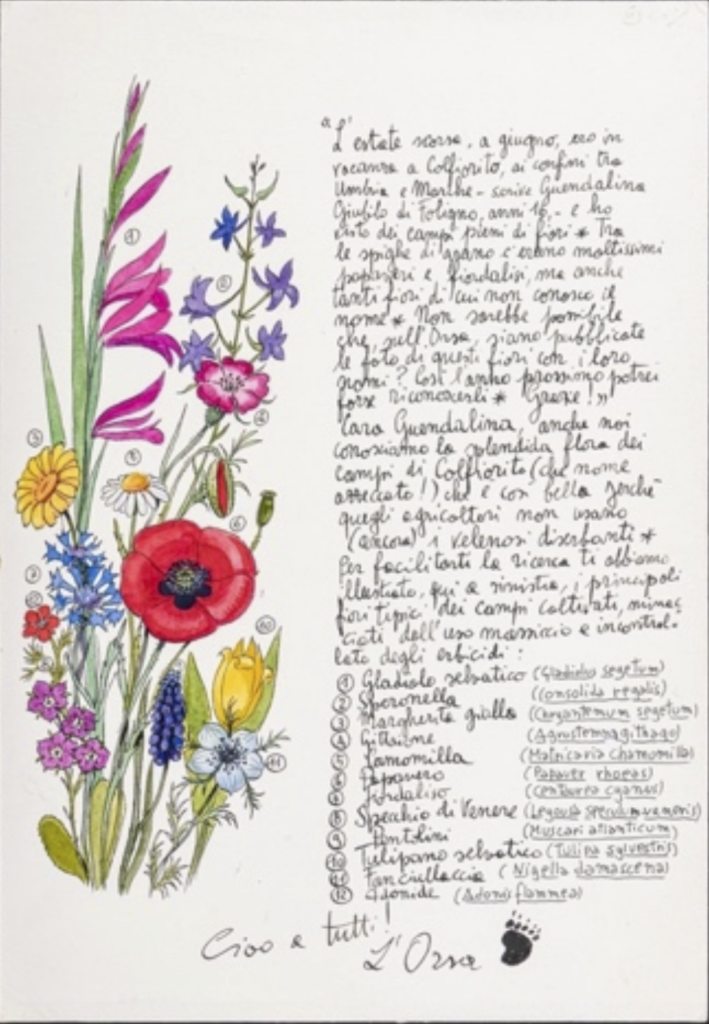 "L'estate scorsa, a giugno, ero in
vacanza a Colfiorito, ai confini tra
Umbria e Marche - scrive Guendalina
Giubilo di Foligno, anni 16, - e ho
visto dei campi pieni di fiori * Tra
le spighe di grano c'erano moltissimi
papaveri e fiordalisi, ma anche
tanti fiori di cui non conosco il
nome * Non sarebbe possibile
che, sull'Orsa, siano pubblicate
le foto di questi fiori con i loro
nomi? Così l'anno prossimo potrei
forse riconoscerli * Grazie!"
Cara Guendalina, anche noi
conosciamo la splendida flora dei
campi di Colfiorito (che nome
azzeccato!) che è così bella perché
quegli agricoltori non usano
(ancora) i velenosi diserbanti *
Per facilitarti la ricerca ti abbiamo
illustrato, qui a sinistra, i principali
fiori tipici dei campi coltivati, minac=
ciati dall'uso massiccio e incontrol=
lato degli erbicidi:
1 Gladiolo selvatico (Gladiolus segetum)
2 Speronella (Consolida regalis)
3 Margherita gialla (Chrysantemum segetum)
4 Gittaione (Agrostemma githago)
5 Camomilla (Matricaria chamomilla)
6 Papavero (Papaver rhoeas)
7 Fiordaliso (Centaurea cyanus)
8 Specchio di Venere (Legousia speculum veneris)
9 Pentolini (Muscari atlanticum)
10 Tulipano selvatico (Tulipa sylvestris)
11 Fanciullaccia (Nigella damascena)
12 Adonide (Adonis flammea)
Ciao a tutti!
L'Orsa